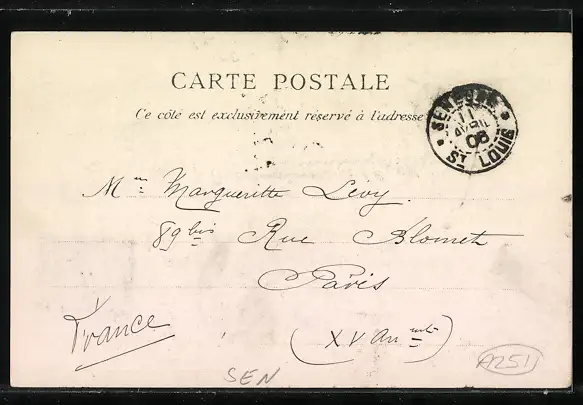 CARTE POSTALE
Ce côté est exclusivement réservé à l'adresse
SENEGAL
11
AVRIL
06
ST LOUIS
Mme Margueritte Levy.
89 bis Rue Blomet
Paris
France
(XV Arrmt)
SEN
A251